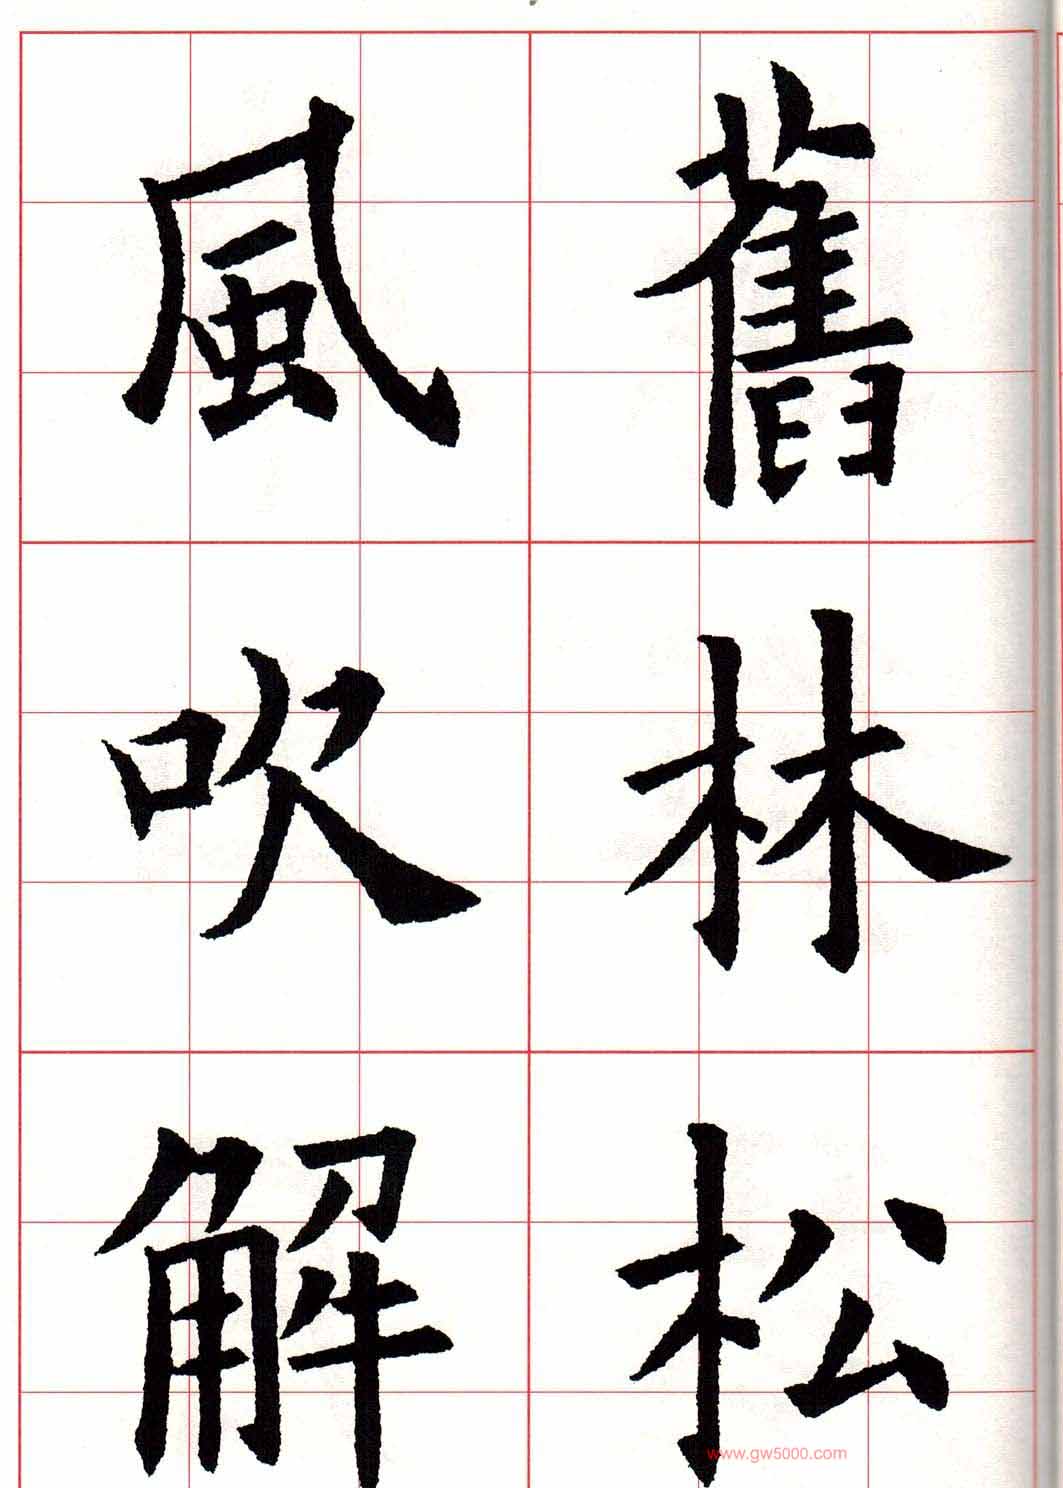 舊林松
風吹解
www.gw5000.com